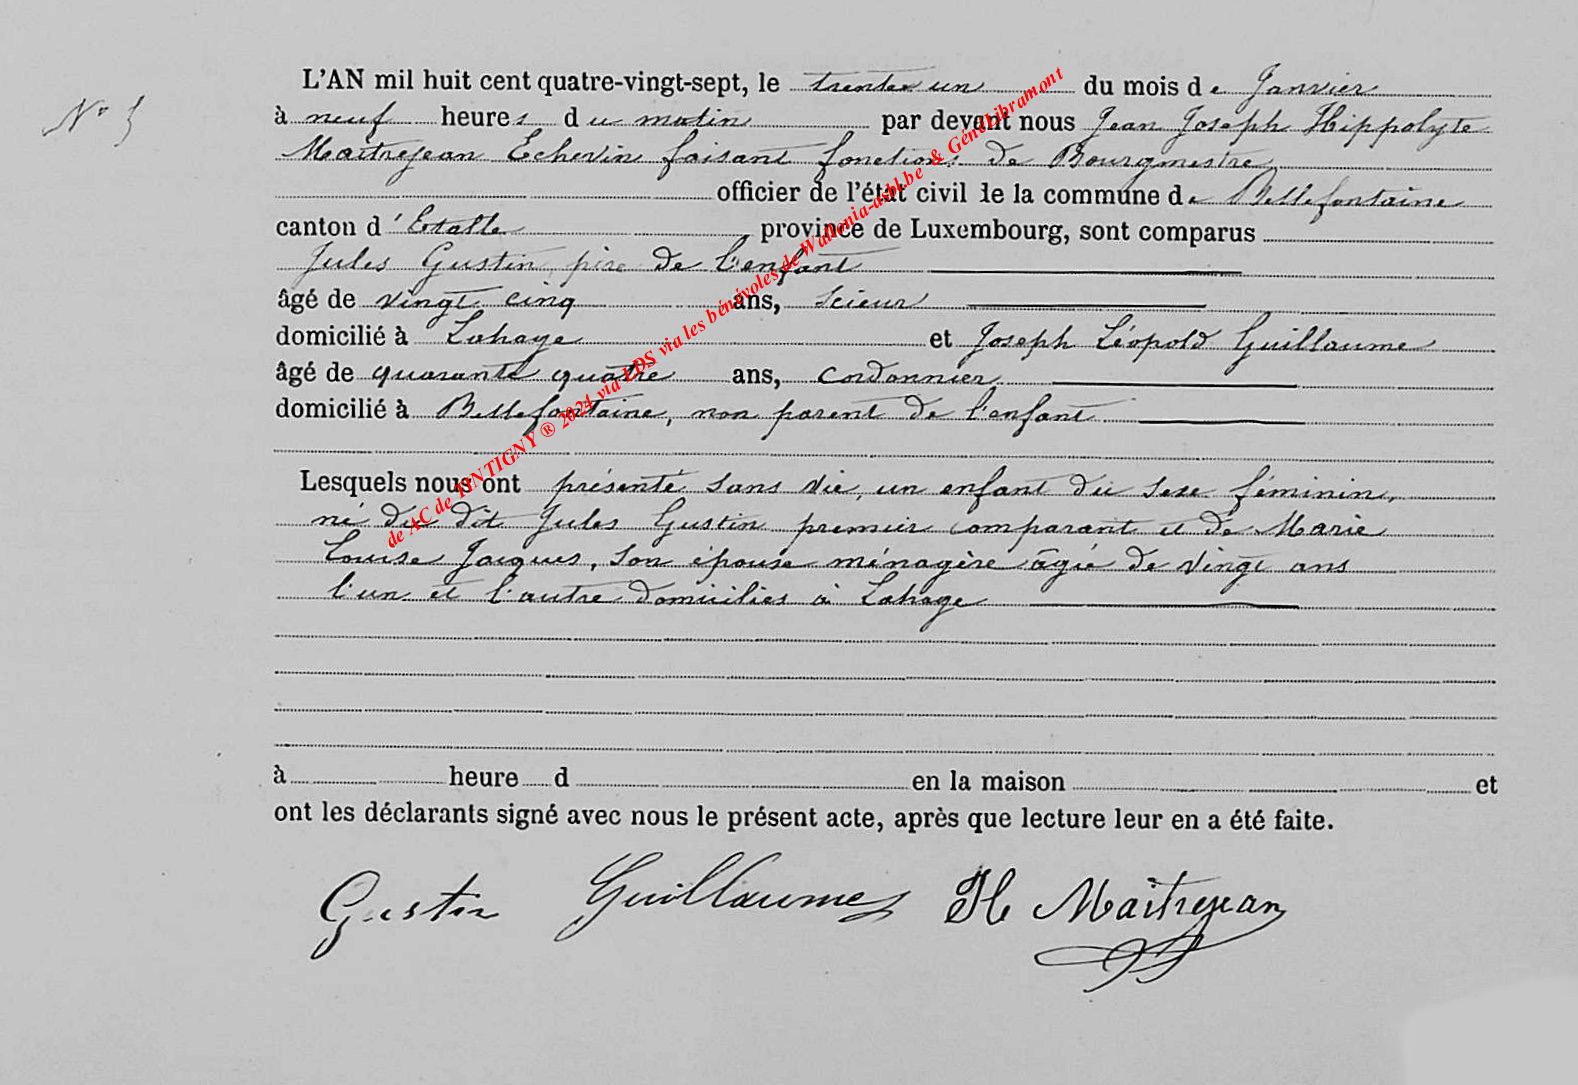 L'AN mil huit cent quatre-vingt-sept, le trente un du mois de Janvier
N° 5
à neuf heures du matin par devant nous Jean Joseph Hippolyte
Maitrejean Echevin faisant fonctions de Bourgmestre
officier de l'état civil de la commune de Bellefontaine
canton d'Etalle province de Luxembourg, sont comparus
Jules Gustin, père de l'enfant
âgé de vingt cinq ans, scieur
domicilié à Lahage et Joseph Léopold Guillaume
âgé de quarante quatre ans, cordonnier,
domicilié à Bellefontaine, non parent de l'enfant
Lesquels nous ont présenté sans vie, un enfant du sexe féminin,
né du dit Jules Gustin premier comparant et de Marie
Louise Jacques, son épouse ménagère âgée de vingt ans
l'un et l'autre domicilies à Lahage
à heure d en la maison et
ont les déclarants signé avec nous le présent acte, après que lecture leur en a été faite.
Gustin Guillaume JH Maitrejean
de AC de TINTIGNY ® 2024 via LDS via les bénévoles de Wallonia-asbl.be & GénéaLibramont